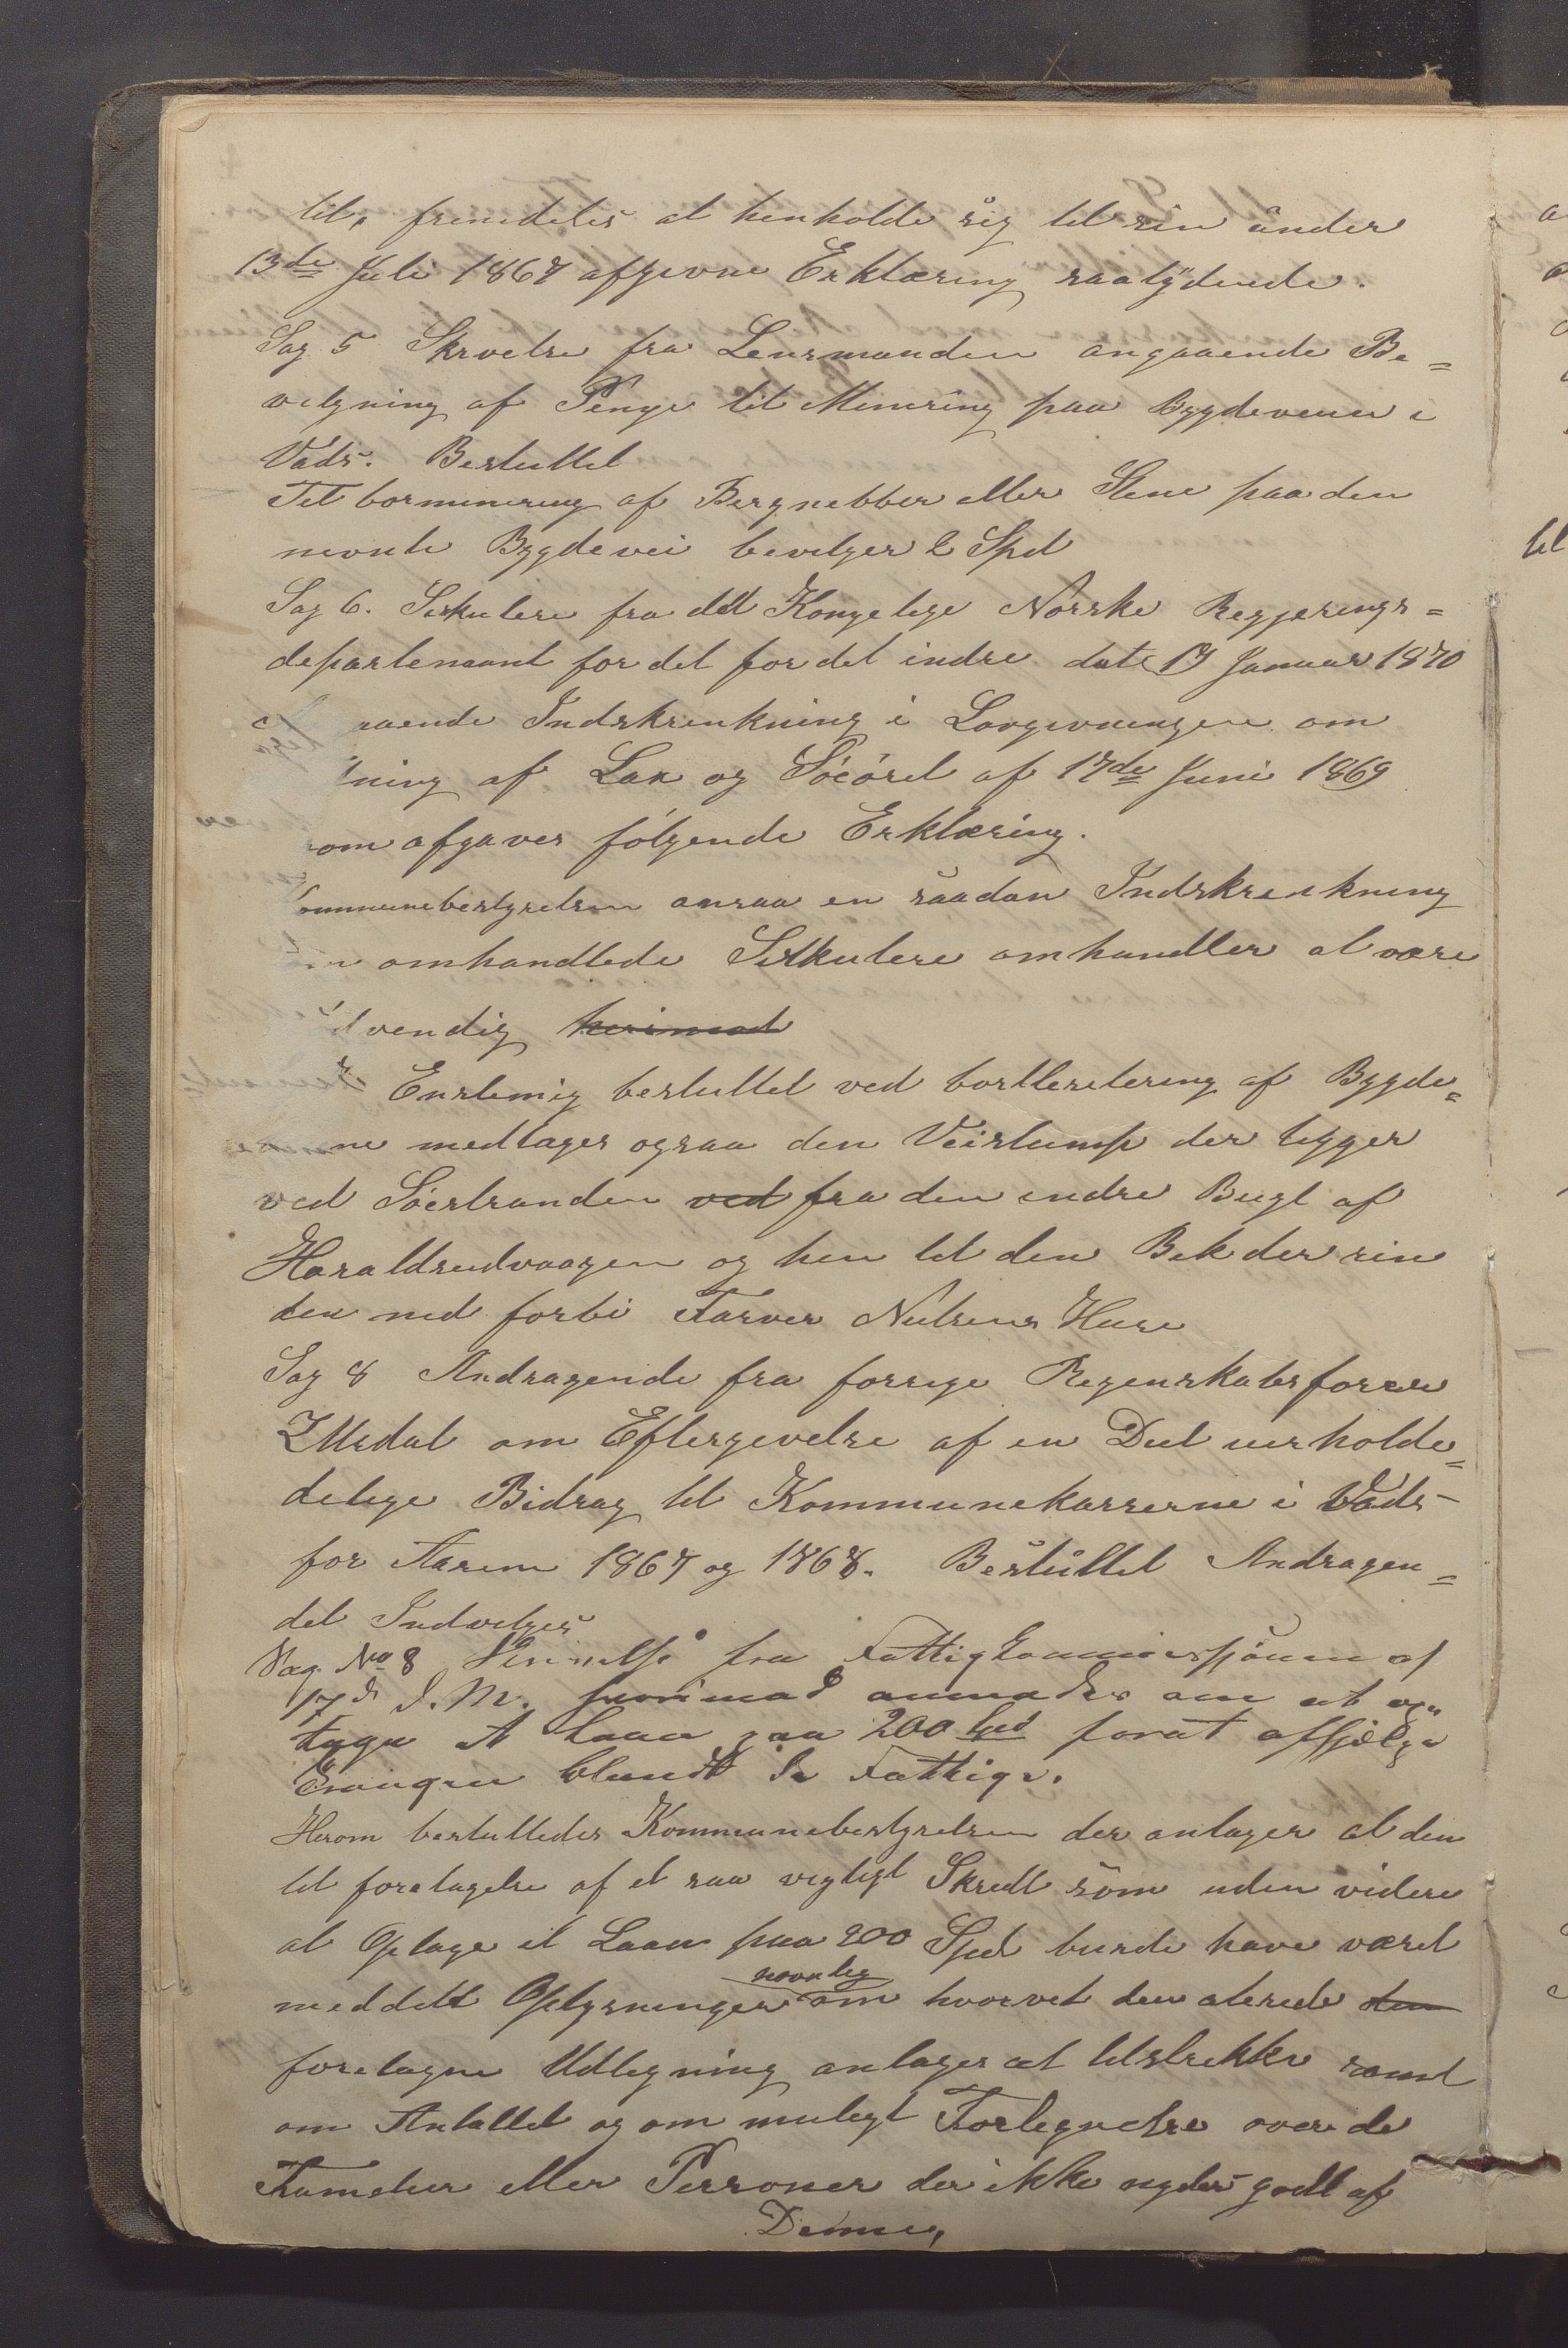 til, fremdeles at henholde sig til sin under
13de Juli 1867 afgivne Erklæring saalydende.
Sag 5 Skrvelse fra Lensmanden angaaende Be=
vilgning af Penge til Minering paa Bygdeveien i
Vads. Besluttet
Til borminering af Bergnebber eller Stene paa den
nevnte Bygdevei bevilges 2 Spd
Sag 6. Sirkulere fra ddt Kongelige Norske Regjerings=
departemant for det for det indre date 19 Januar 1870
aaende Indskrenkning i Lovgivningen om
ning af Lax og Söeörel af 17de Juni 1869
om afgaves fölgende Erklæring.
ommunebestyrelsen ansaa en saadan Indskrenkning
omhandlede Sirkulere omhandler at være
dvendig herimod
Enstemig besluttet ved bortlesitering af Bygde=
ne medtages ogsaa den Veistump der ligger
ved Söestranden ved fra den indre Bugt af
Haraldseidvaagen og hen til den Bek der rin
der ned forbi Farver Nielsens Huse
Sag 8 Andragende fra forrige Regenskabsförer
Ullsdal om Eftergivelse af en Deel uerholde=
delige Bidrag til Kommunekasserne i Vads-
for Aarene 1867 og 1868. Besluttet Andragen=
det Indvilges
Sag No 8 fra Fattigkommissjonen af
17d d. M. hvorimod anmodes om at op„
tage et Laan paa 200 Spd forat afhjelpe
Trangen blandt de Fattige.
Herom besluttedes Kommunebestyrelsen der antager at den
til foretagelse af et saa vigtigt Skredt som uden videre
at Optage et Laan paa 200 Spd burde have været
meddelt Oplysninger navnlig om hvorvit den alerede den
foretagne Udligning antages at tilstrekke samt
om Antallet og om muligt Fortegnelse over de
Familier eller Personer der ikke nyder godt af
Denne,